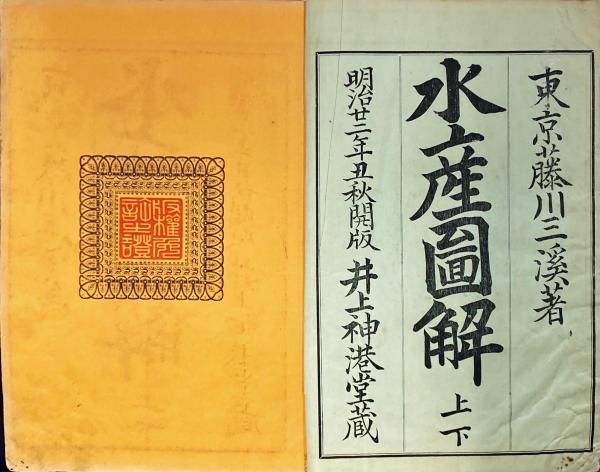 東京藤川三溪著
水産圖解 上下
明治廿二年丑秋開版 井上神港堂蔵
版權所
有之證